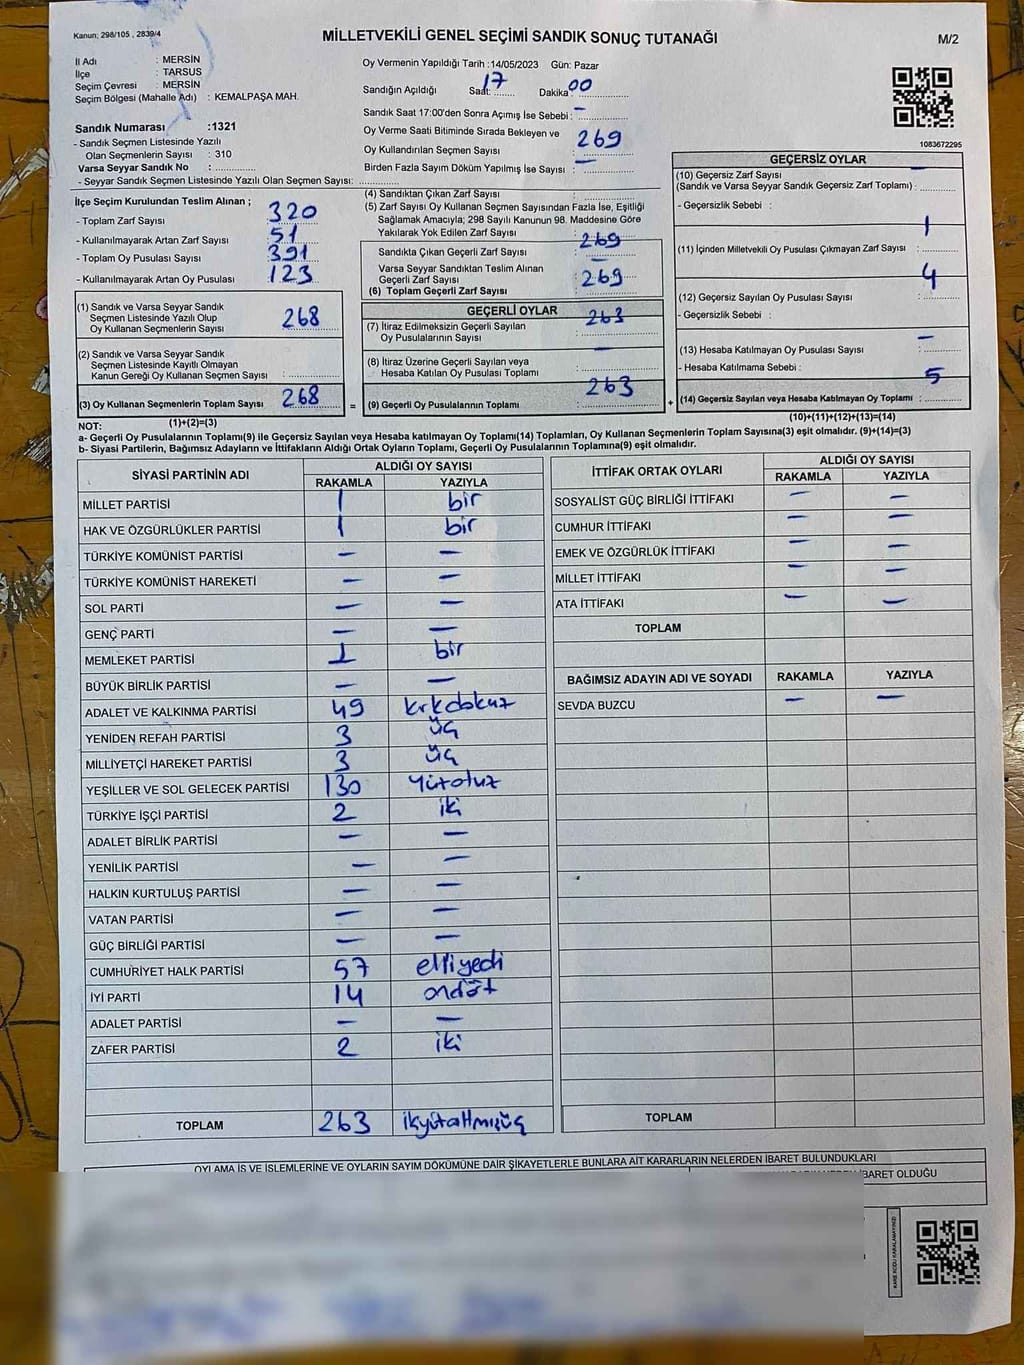 Kanun; 298/105 , 2839/4
MİLLETVEKİLİ GENEL SEÇİMİ SANDIK SONUÇ TUTANAĞI
M/2
İl Adı : MERSİN
İlçe : TARSUS
Seçim Çevresi : MERSİN
Seçim Bölgesi (Mahalle Adı) : KEMALPAŞA MAH.
Sandık Numarası :1321
- Sandık Seçmen Listesinde Yazılı
Olan Seçmenlerin Sayısı : 310
Varsa Seyyar Sandık No :
- Seyyar Sandık Seçmen Listesinde Yazılı Olan Seçmen Sayısı:
Oy Vermenin Yapıldığı Tarih :14/05/2023 Gün: Pazar
Sandığın Açıldığı Saat: 17 Dakika 00
Sandık Saat 17:00'den Sonra Açımış İse Sebebi : –
Oy Verme Saati Bitiminde Sırada Bekleyen ve
Oy Kullandırılan Seçmen Sayısı : 269
Birden Fazla Sayım Döküm Yapılmış İse Sayısı : –
1083672295
İlçe Seçim Kurulundan Teslim Alınan ;
- Toplam Zarf Sayısı : 320
- Kullanılmayarak Artan Zarf Sayısı : 51
- Toplam Oy Pusulası Sayısı : 391
- Kullanılmayarak Artan Oy Pusulası : 123
(1) Sandık ve Varsa Seyyar Sandık
Seçmen Listesinde Yazılı Olup
Oy Kullanan Seçmenlerin Sayısı : 268
(2) Sandık ve Varsa Seyyar Sandık
Seçmen Listesinde Kayıtlı Olmayan
Kanun Gereği Oy Kullanan Seçmen Sayısı :
(3) Oy Kullanan Seçmenlerin Toplam Sayısı : 268
(1)+(2)=(3)
(4) Sandıktan Çıkan Zarf Sayısı :
(5) Zarf Sayısı Oy Kullanan Seçmen Sayısından Fazla İse, Eşitliği
Sağlamak Amacıyla; 298 Sayılı Kanunun 98. Maddesine Göre
Yakılarak Yok Edilen Zarf Sayısı :
Sandıkta Çıkan Geçerli Zarf Sayısı : 269
Varsa Seyyar Sandıktan Teslim Alınan
Geçerli Zarf Sayısı : –
(6) Toplam Geçerli Zarf Sayısı : 269
GEÇERLİ OYLAR
(7) İtiraz Edilmeksizin Geçerli Sayılan
Oy Pusulalarının Sayısı : 263
(8) İtiraz Üzerine Geçerli Sayılan veya
Hesaba Katılan Oy Pusulası Toplamı : –
= (9) Geçerli Oy Pusulalarının Toplamı : 263
GEÇERSİZ OYLAR
(10) Geçersiz Zarf Sayısı
(Sandık ve Varsa Seyyar Sandık Geçersiz Zarf Toplamı) :
- Geçersizlik Sebebi :
(11) İçinden Milletvekili Oy Pusulası Çıkmayan Zarf Sayısı : 1
(12) Geçersiz Sayılan Oy Pusulası Sayısı : 4
- Geçersizlik Sebebi :
(13) Hesaba Katılmayan Oy Pusulası Sayısı : –
- Hesaba Katılmama Sebebi :
+ (14) Geçersiz Sayılan veya Hesaba Katılmayan Oy Toplamı : 5
(10)+(11)+(12)+(13)=(14)
NOT:
a- Geçerli Oy Pusulalarının Toplamı(9) ile Geçersiz Sayılan veya Hesaba katılmayan Oy Toplamı(14) Toplamları, Oy Kullanan Seçmenlerin Toplam Sayısına(3) eşit olmalıdır. (9)+(14)=(3)
b- Siyasi Partilerin, Bağımsız Adayların ve İttifakların Aldığı Ortak Oyların Toplamı, Geçerli Oy Pusulalarının Toplamına(9) eşit olmalıdır.
SİYASİ PARTİNİN ADI ALDIĞI OY SAYISI
RAKAMLA YAZIYLA
MİLLET PARTİSİ 1 bir
HAK VE ÖZGÜRLÜKLER PARTİSİ 1 bir
TÜRKİYE KOMÜNİST PARTİSİ – –
TÜRKİYE KOMÜNİST HAREKETİ – –
SOL PARTİ – –
GENÇ PARTİ – –
MEMLEKET PARTİSİ 1 bir
BÜYÜK BİRLİK PARTİSİ – –
ADALET VE KALKINMA PARTİSİ 49 kırkdokuz
YENİDEN REFAH PARTİSİ 3 üç
MİLLİYETÇİ HAREKET PARTİSİ 3 üç
YEŞİLLER VE SOL GELECEK PARTİSİ 130 yüzotuz
TÜRKİYE İŞÇİ PARTİSİ 2 iki
ADALET BİRLİK PARTİSİ – –
YENİLİK PARTİSİ – –
HALKIN KURTULUŞ PARTİSİ – –
VATAN PARTİSİ – –
GÜÇ BİRLİĞİ PARTİSİ – –
CUMHURİYET HALK PARTİSİ 57 elliyedi
İYİ PARTİ 14 ondört
ADALET PARTİSİ – –
ZAFER PARTİSİ 2 iki
TOPLAM 263 ikiyüzaltmışüç
İTTİFAK ORTAK OYLARI ALDIĞI OY SAYISI
RAKAMLA YAZIYLA
SOSYALİST GÜÇ BİRLİĞİ İTTİFAKI – –
CUMHUR İTTİFAKI – –
EMEK VE ÖZGÜRLÜK İTTİFAKI – –
MİLLET İTTİFAKI – –
ATA İTTİFAKI – –
TOPLAM
BAĞIMSIZ ADAYIN ADI VE SOYADI RAKAMLA YAZIYLA
SEVDA BUZCU – –
TOPLAM
OYLAMA İŞ VE İŞLEMLERİNE VE OYLARIN SAYIM DÖKÜMÜNE DAİR ŞİKAYETLERLE BUNLARA AİT KARARLARIN NELERDEN İBARET BULUNDUKLARI
İBARET OLDUĞU